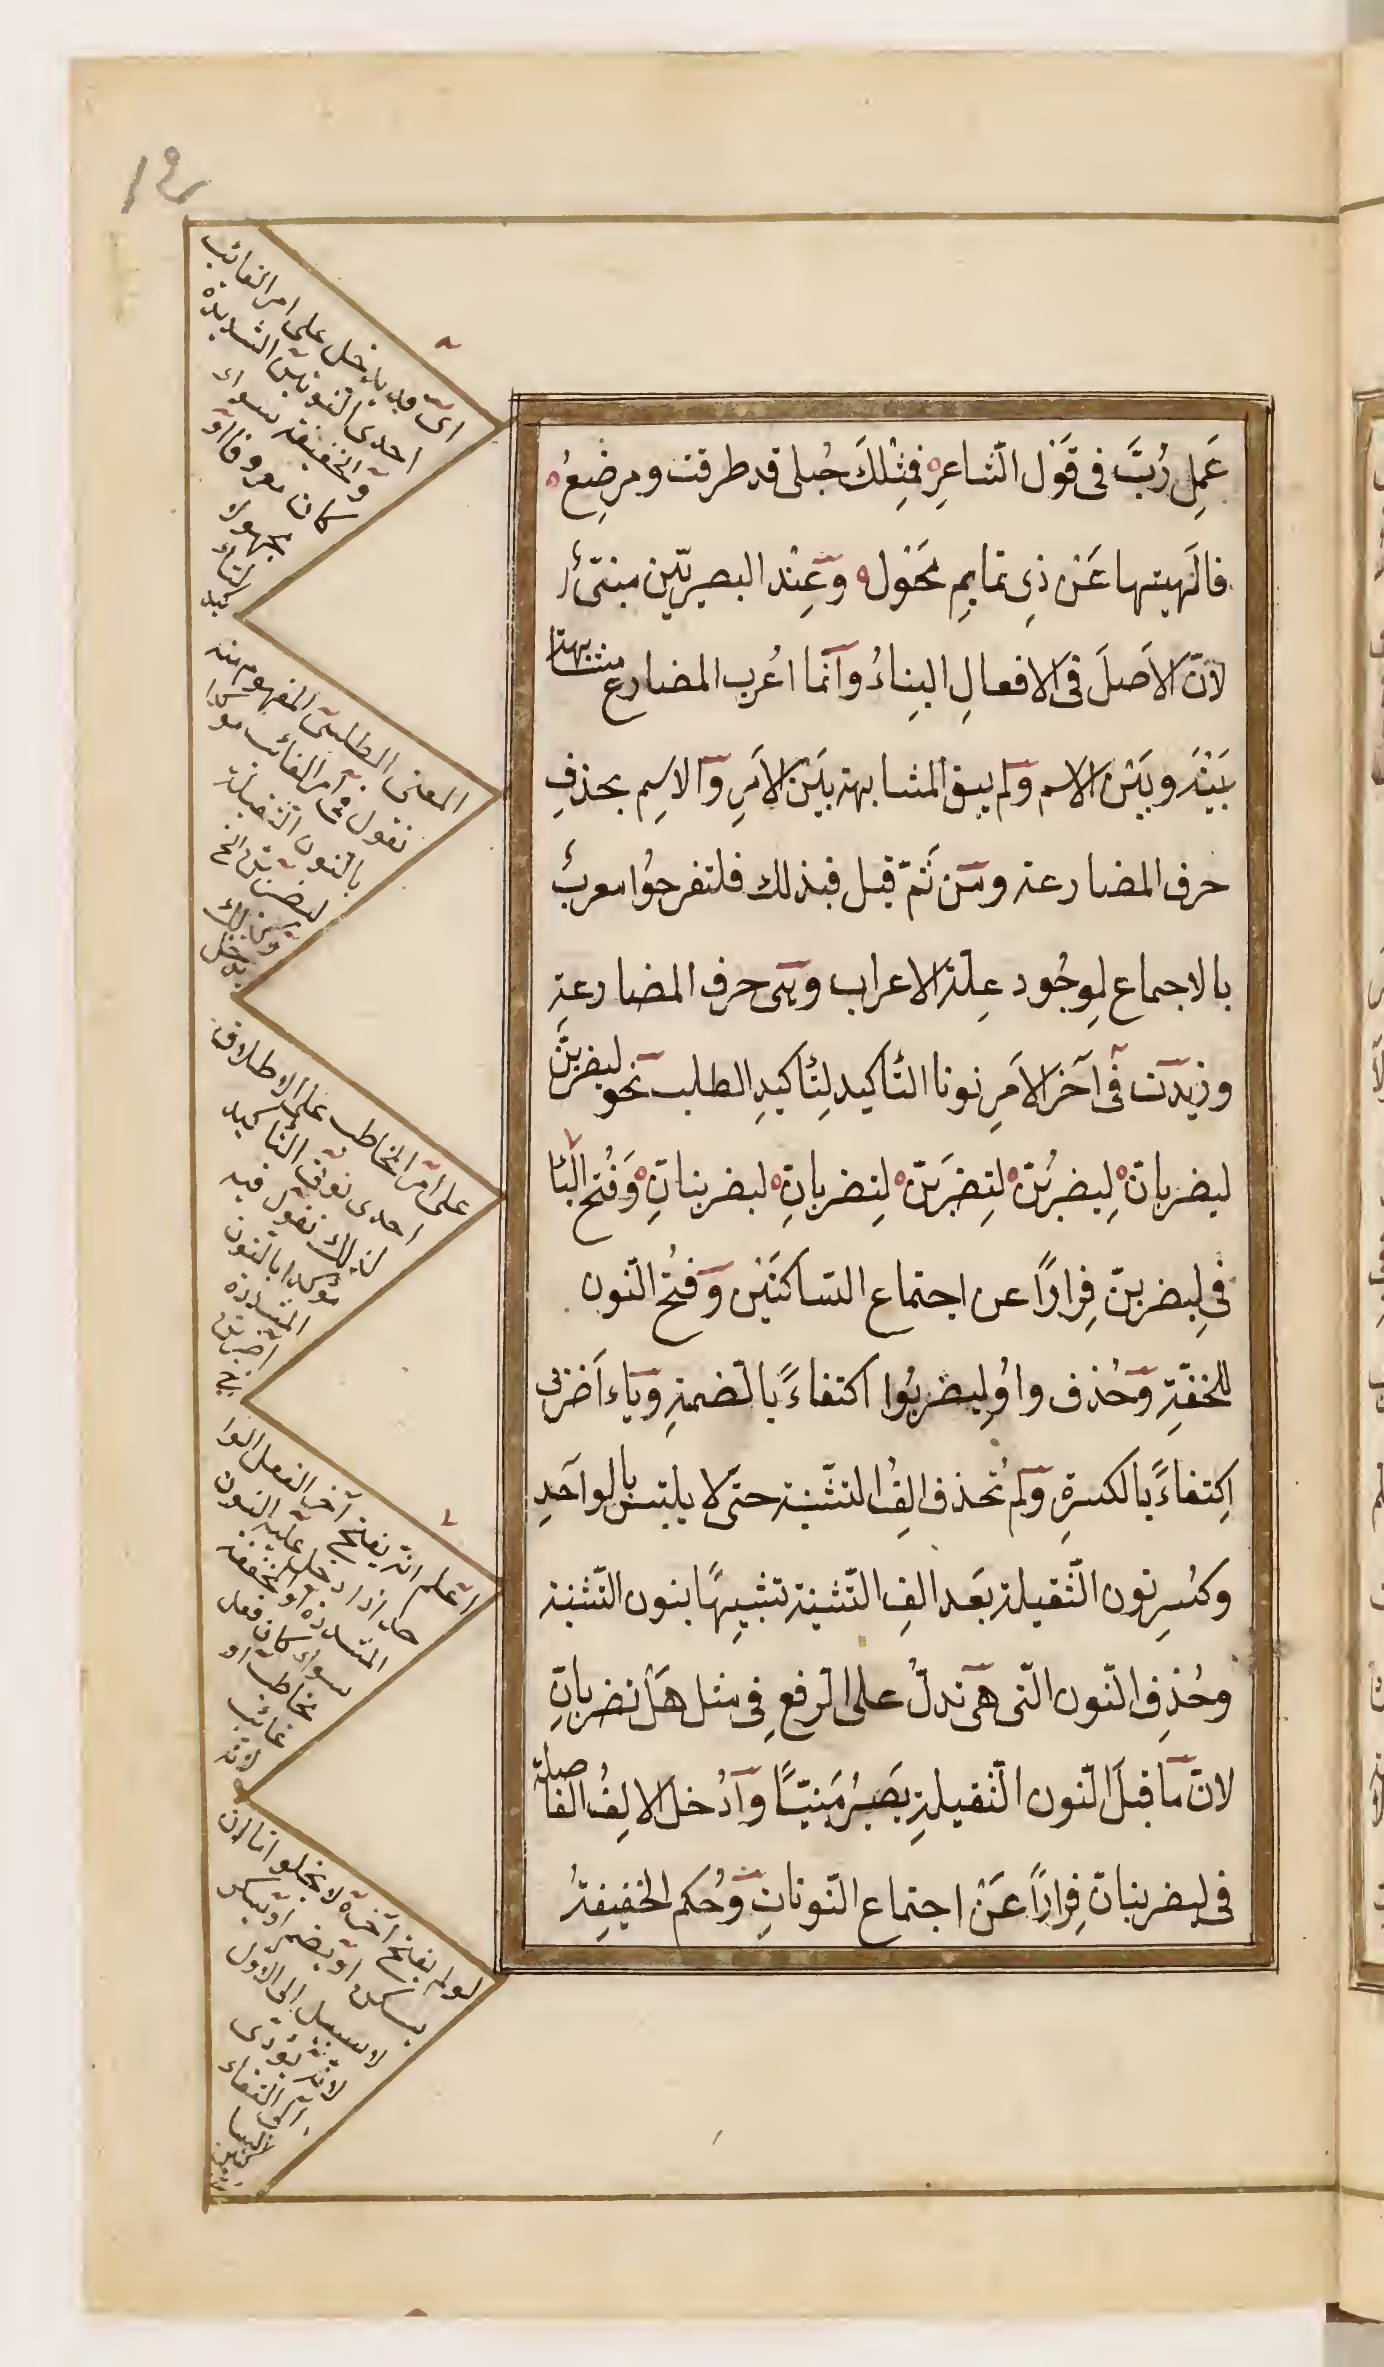 عَمِلِ رُبَّ فى قَوْل الشّاعرِ فَمِثْلِكَ حُبلى قد طرقت ومرضِعُ
فالَهيتها عَنْ ذِى تمايمِ مُحَوْلِ وعِنْد البصريّين مبنىٌّ
لانّ الاَصلَ فى الافعالِ البِناءُ وانّما اُعرب المضارع مشابهة
بَيْنَه وبَيْن الاسم ولم يبق المشابهة بَيْن الاَمرِ والاسِم بحذفِ
حرف المضارعة ومن ثَمّ قيل فبذلك فلتفرحوُا معربٌ
بالاجماع لِوجُود عِلّة الاعراب وهى حرف المضارعة
وزيدت فى آخر الاَمرِ نونا التّأكيد لِتأكيدِ الطلب نحو ليضربنّ
ليضربانّ لِيضربُنّ لتِضربَنّ لِتضربانّ ليضربنانِّ وَفُتح البَاء
فى لِيضربنّ فِراراً عن اجتماع السّاكنَيْن وَفتحُ النّون
للخفّة وحُذف واوُ لِيضربُوا اكتفاءً بالضمة وياء اَضربى
اِكتفاءً بالكسرةِ ولم تُحذف الِفُ التثّنية حتّى لا يلتبس بالواحدِ
وكُسِر نون الثّقيلة بعَد الفِ التّثنية تشبيهًا بنون التّثنية
وحُذِف النّون الّتى هى تدلّ على الرّفعِ فى مثل هَلْ تضربانِّ
لانّ ما قبلَ النّون الثّقيلةِ يَصيرُ مَبنيًّا واَدُخل الالِفُ الفاصلة
فى ليضربنانّ فِراراً عَنْ اجتماع النّوناتِ وَحُكم الخفيفِةُ
اى قد يدخل على امر الغائب
احدى النونين الشديدة
والخفيفة سواء
كان معروفا او
مجهولا
لتاء
كيد
المعنى الطلبىّ المفهوم منه
تقول فى امر الغائب مؤكدا
بالنون الثقيلة
ليضربنّ الخ
وكذلك
يدخل
على امر المخاطب على الاطلاق
احدى نونى التأكيد
لذلك تقول فيه
مؤكدا بالنون
المشددة
اضربنّ
اعلم انه يفتح آخر الفعل الوا
حد اذا دخل عليه النون
المشددة او المخففة
سواء كان فعل
مخاطب او
غائب
لانه
لو لم يفتح آخره لا يخلو اما ان
يسكن او يضم او يكسر
لا سبيل الى الاول
لانه يؤدى
الى التقاء
الساكنين